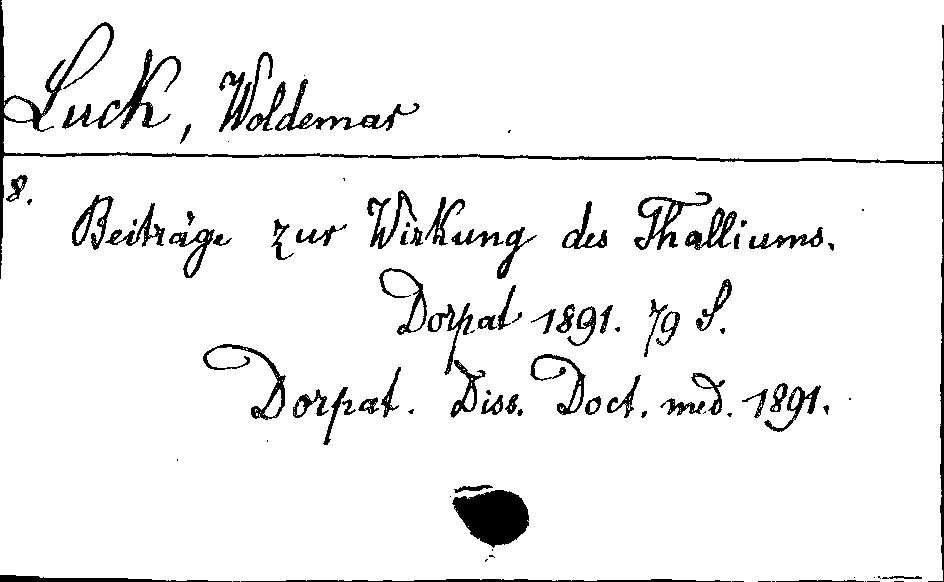 Luck, Woldemar
8.
Beiträge zur Wirkung des Thalliums.
Dorpat 1891. 79 S.
Dorpat. Diss. Doct. med. 1891.